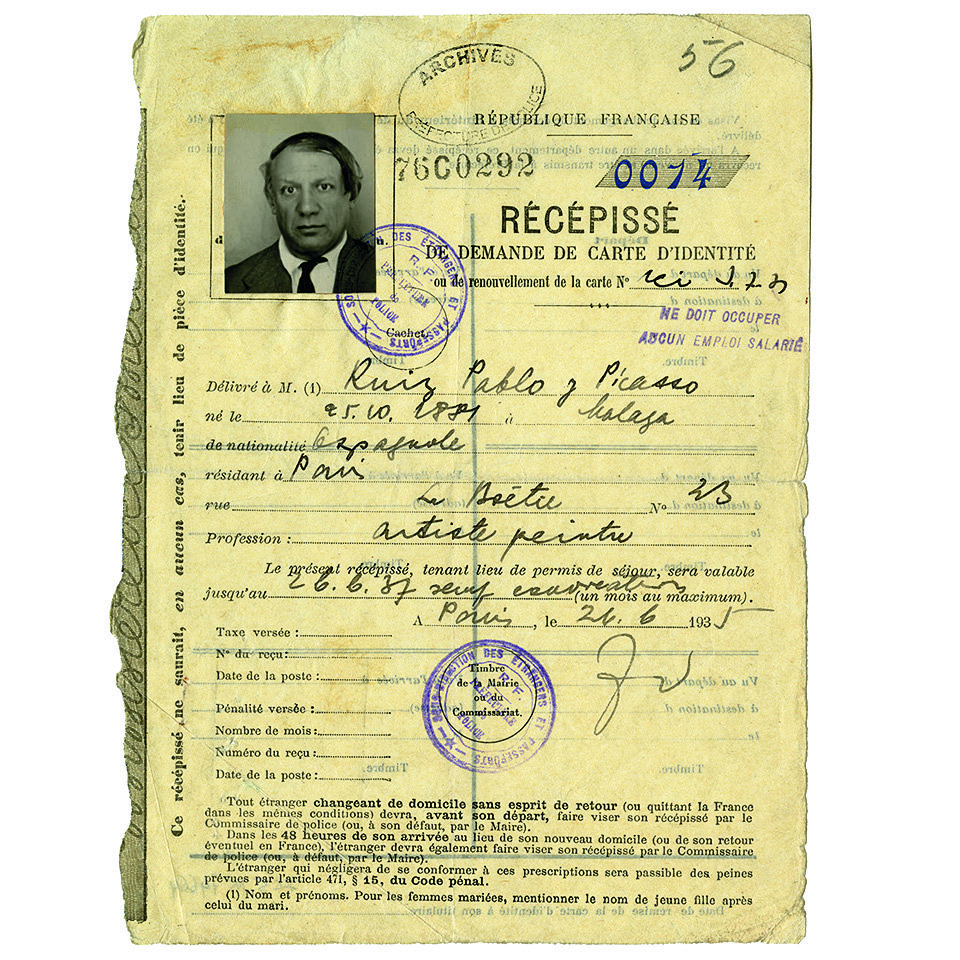 56
ARCHIVES
PRÉFECTURE DE POLICE
RÉPUBLIQUE FRANÇAISE
76C0292
0074
RÉCÉPISSÉ
DE DEMANDE DE CARTE D'IDENTITÉ
ou de renouvellement de la carte No
NE DOIT OCCUPER
AUCUN EMPLOI SALARIÉ
SOUS-DIRECTION DES ÉTRANGERS ET PASSEPORTS
R.F.
PRÉFECTURE
DE
POLICE
Cachet
Délivré à M. (1) Ruiz Pablo y Picasso
né le 25.10.1881 à Malaga
de nationalité Espagnole
résidant à Paris
rue La Boétie No 23
Profession : artiste peintre
Le présent récépissé, tenant lieu de permis de séjour, sera valable
jusqu'au 26.6.37 (un mois au maximum).
A Paris, le 26.6 1935
Taxe versée :
No du reçu :
Date de la poste :
Pénalité versée :
Nombre de mois :
Numéro du reçu :
Date de la poste :
SOUS-DIRECTION DES ÉTRANGERS ET PASSEPORTS
R.F.
PRÉFECTURE
DE
POLICE
Timbre
de la Mairie
ou du
Commissariat.
Tout étranger changeant de domicile sans esprit de retour (ou quittant la France
dans les mêmes conditions) devra, avant son départ, faire viser son récépissé par le
Commissaire de police (ou, à son défaut, par le Maire).
Dans les 48 heures de son arrivée au lieu de son nouveau domicile (ou de son retour
éventuel en France), l'étranger devra également faire viser son récépissé par le Commissaire
de police (ou, à défaut, par le Maire).
L'étranger qui négligera de se conformer à ces prescriptions sera passible des peines
prévues par l'article 471, § 15, du Code pénal.
(1) Nom et prénoms. Pour les femmes mariées, mentionner le nom de jeune fille après
celui du mari.
Ce récépissé ne saurait, en aucun cas, tenir lieu de pièce d'identité.